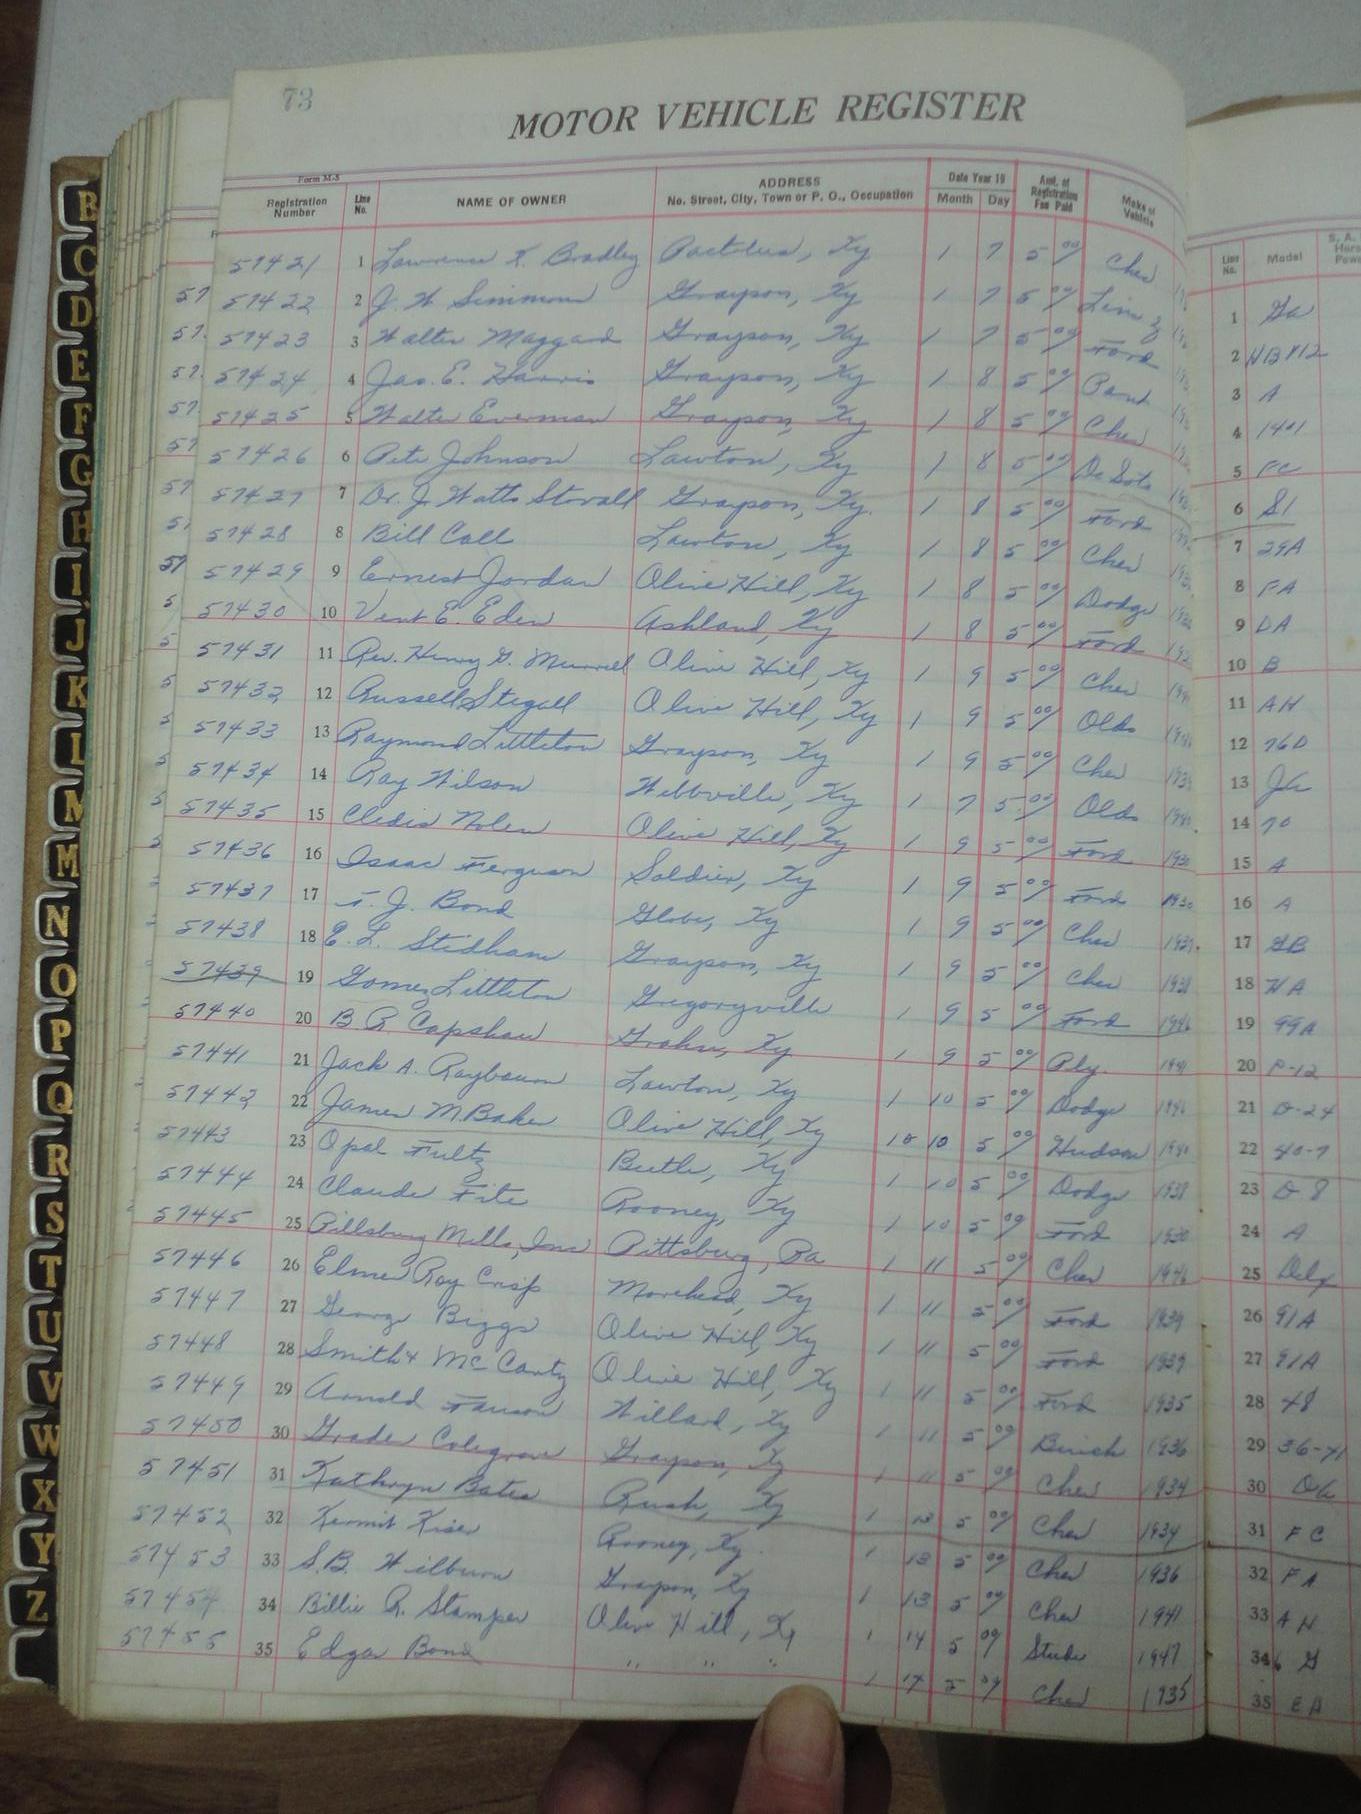 73
MOTOR VEHICLE REGISTER
Form M-3
Registration Number Line No. NAME OF OWNER ADDRESS No. Street, City, Town or P. O., Occupation Date Year 19 Month Day Amt. of Registration Fee Paid Make of Vehicle Line No. Model S. A. Horse Power
57421 1 Lawrence K. Bradley Pactolus, Ky 1 7 5 00 Chev 1 Ga
57422 2 J. H. Simmons Grayson, Ky 1 7 5 00 2
57423 3 Walter Maggard Grayson, Ky 1 7 5 00 Ford 3 A
57424 4 Jas. E. Harris Grayson, Ky 1 8 5 00 Pont 4 1401
57425 5 Walter Everman Grayson, Ky 1 8 5 00 Chev 5 FC
57426 6 Pete Johnson Lawton, Ky 1 8 5 00 De Soto 6 S1
57427 7 Dr. J. Watts Stovall Grayson, Ky. 1 8 5 00 Ford 7 29A
57428 8 Bill Call Lawton, Ky 1 8 5 00 Chev 8 FA
57429 9 Ernest Jordan Olive Hill, Ky 1 8 5 00 Dodge 9 DA
57430 10 Vent E. Eden Ashland, Ky 1 8 5 00 Ford 10 B
57431 11 Rev. Henry G. Murrell Olive Hill, Ky 1 9 5 00 Chev 11 AH
57432 12 Russell Stegall Olive Hill, Ky 1 9 5 00 Olds 12 76D
57433 13 Raymond Littleton Grayson, Ky 1 9 5 00 Chev 13 Ja
57434 14 Ray Wilson Webbville, Ky 1 7 5 00 Olds 1940 14 70
57435 15 Cledis Nolen Olive Hill, Ky 1 9 5 00 Ford 1930 15 A
57436 16 Isaac Ferguson Soldier, Ky 1 9 5 00 Ford 1930 16 A
57437 17 T. J. Bond Globe, Ky 1 9 5 00 Chev 1937 17 GB
57438 18 E. L. Stidham Grayson, Ky 1 9 5 00 Chev 1938 18 HA
57439 19 Gomez Littleton Gregoryville 1 9 5 00 Ford 1946 19 99A
57440 20 B. R. Capshaw Grahn, Ky 1 9 5 00 Ply. 1941 20 P-12
57441 21 Jack A. Raybourn Lawton, Ky 1 10 5 00 Dodge 1946 21 D-24
57442 22 James M. Baker Olive Hill, Ky 10 10 5 00 Hudson 1940 22 40-7
57443 23 Opal Fultz Ky 1 10 5 00 Dodge 1938 23 D 8
57444 24 Claude Fite Rooney, Ky 1 10 5 00 Ford 1930 24 A
57445 25 Pillsbury Mills, Inc Pittsburg, Pa 1 11 5 00 Chev 1946 25 Delx
57446 26 Elmer Roy Crisp Morehead, Ky 1 11 5 00 Ford 1939 26 91A
57447 27 George Biggs Olive Hill, Ky 1 11 5 00 Ford 1939 27 91A
57448 28 Smith & McCarty Olive Hill, Ky 1 11 5 00 Ford 1935 28 48
57449 29 Arnold Willard, Ky 1 11 5 00 Buick 1936 29 36-41
57450 30 Colegrove Grayson, Ky 1 11 5 00 Chev 1934 30
57451 31 Kathryn Bates Rush, Ky 1 13 5 00 Chev 1934 31 FC
57452 32 Kermit Kiser Rooney, Ky. 1 13 5 00 Chev 1936 32 FA
57453 33 S.B. Wilburn Grayson, Ky 1 13 5 00 Chev 1941 33 AH
57454 34 Billie R. Stamper Olive Hill, Ky 1 14 5 00 Stude 1947 34 6 G
57455 35 Edgar Bond " " " 1 14 5 00 Chev 1935 35 EA
B
C
D
E
F
G
H
I
J
K
L
M
M
N
O
P
Q
R
S
T
U
V
W
X
Y
Z